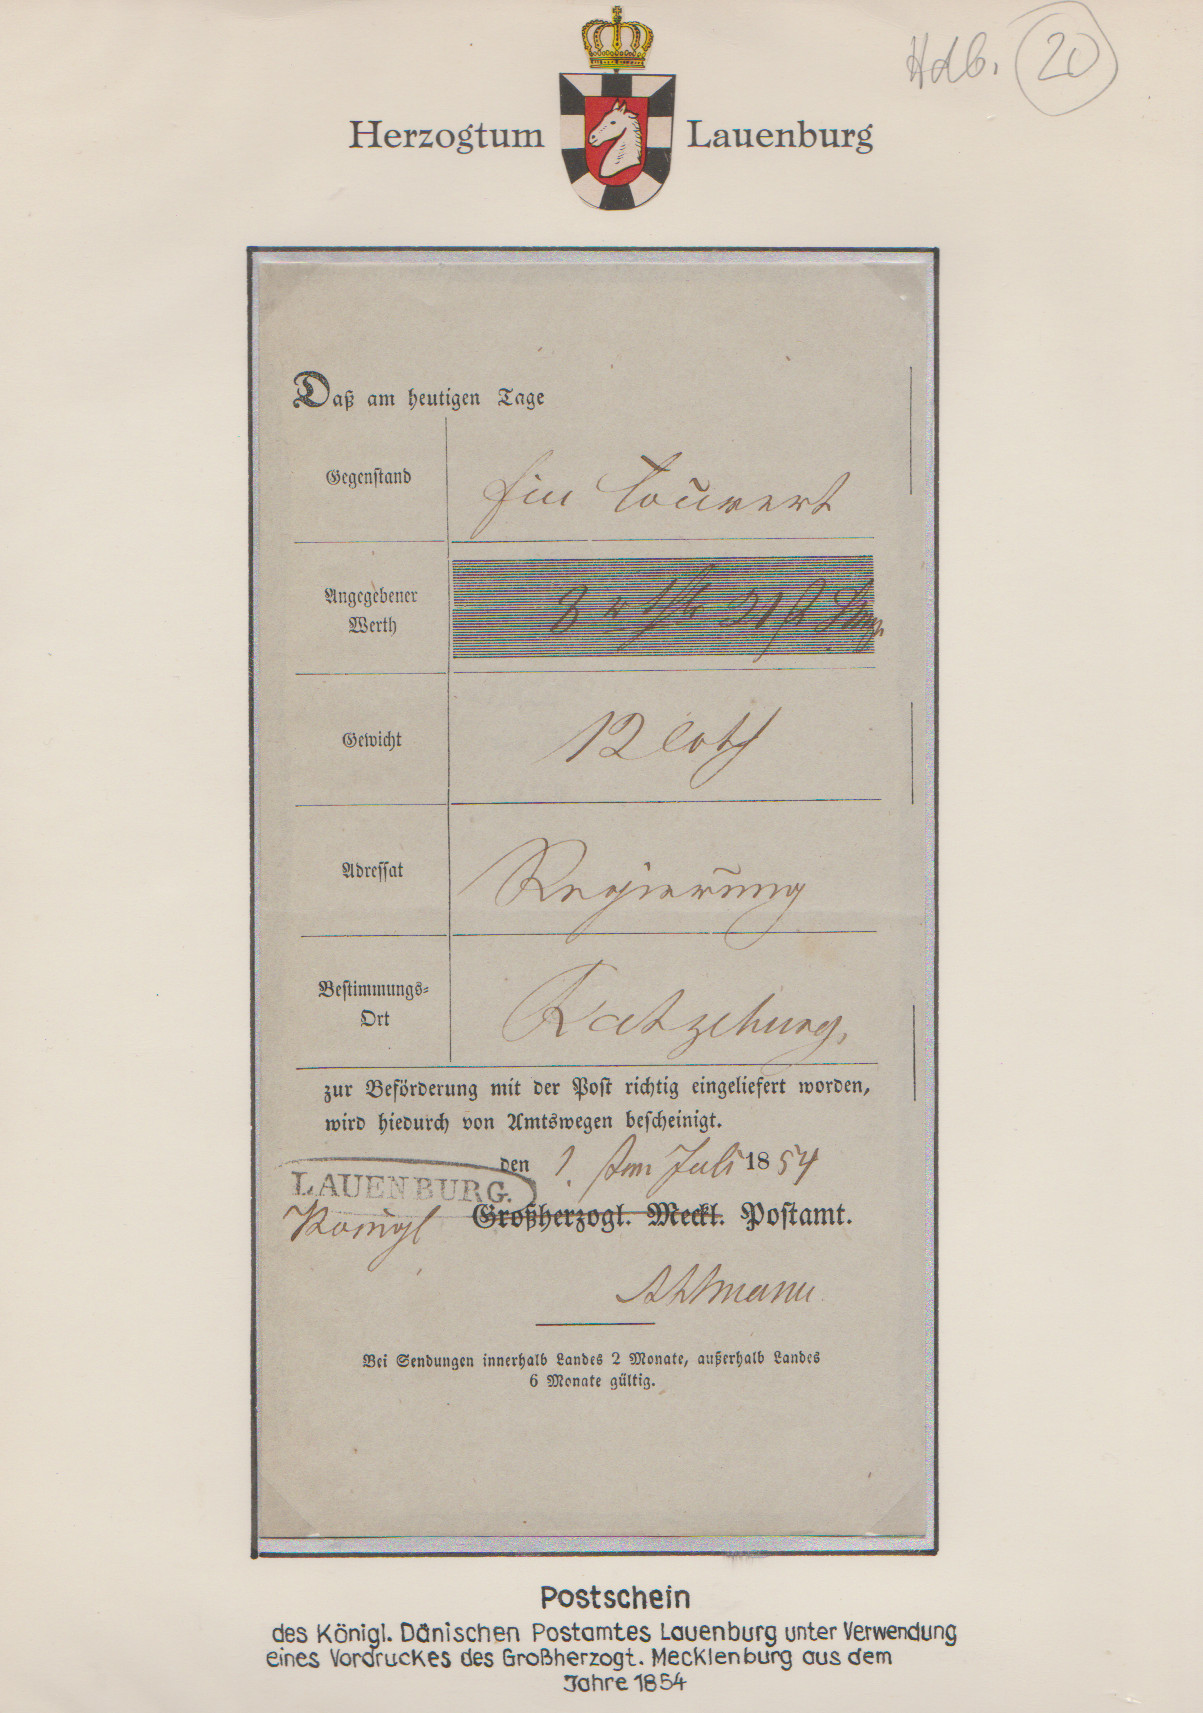 Hdb. 20
Herzogtum Lauenburg
Daß am heutigen Tage
Gegenstand
Ein Couvert
Angegebener
Werth
Gewicht
12 Loth
Adressat
Regierung
Bestimmungs-
Ort
Ratzeburg,
zur Beförderung mit der Post richtig eingeliefert worden,
wird hiedurch von Amtswegen bescheinigt.
den 1. Juli 1854
LAUENBURG.
Königl Großherzogl. Meckl. Postamt.
Ahlmann
Bei Sendungen innerhalb Landes 2 Monate, außerhalb Landes
6 Monate gültig.
Postschein
des Königl. Dänischen Postamtes Lauenburg unter Verwendung
eines Vordruckes des Großherzogt. Mecklenburg aus dem
Jahre 1854